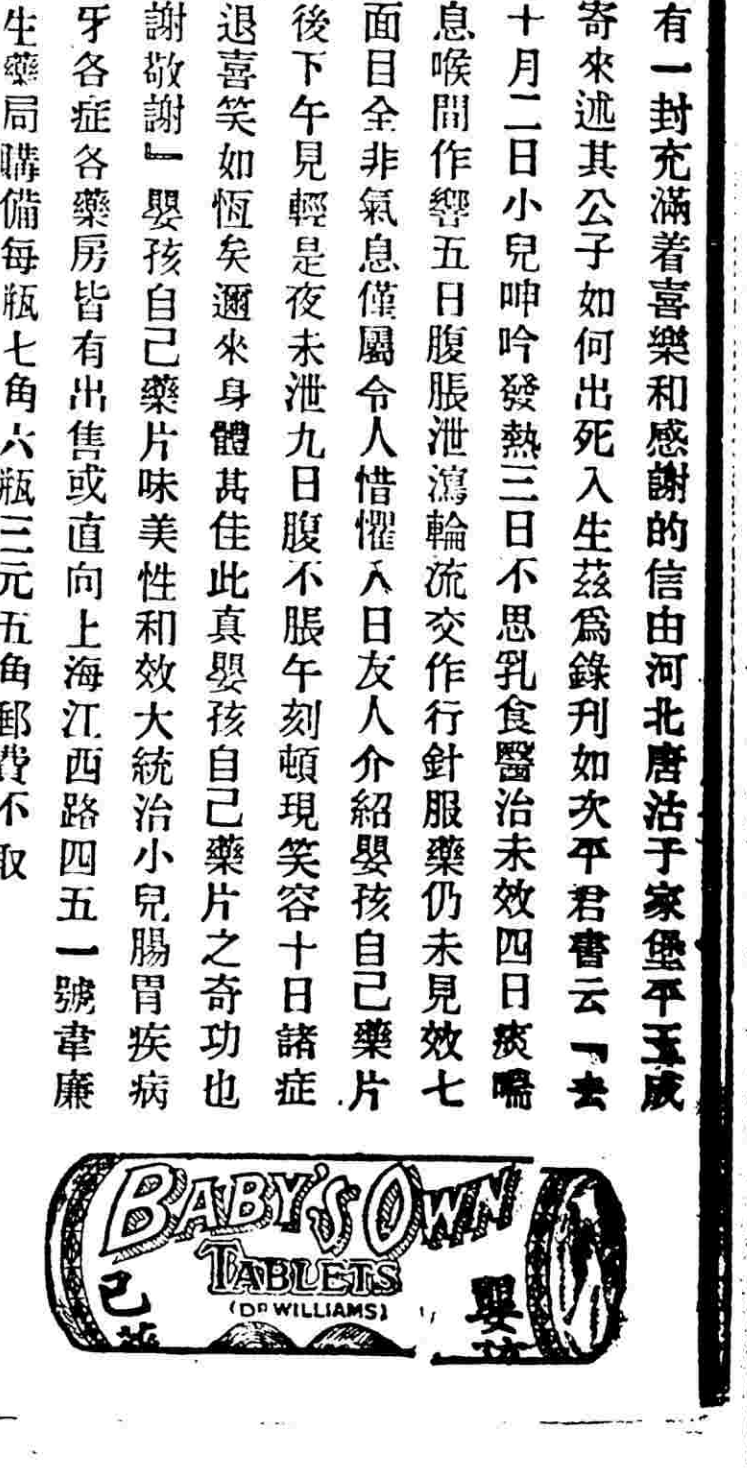 有一封充滿着喜樂和感謝的信由河北唐沽于家堡平玉成
寄來述其公子如何出死入生茲爲錄刋如次平君書云『去
十月二日小兒呻吟發熱三日不思乳食醫治未效四日痰喘
息喉間作響五日腹脹泄瀉輪流交作行針服藥仍未見效七
面目全非氣息僅屬令人惜懼八日友人介紹嬰孩自己藥片
後下午見輕是夜未泄九日腹不脹午刻頓現笑容十日諸症
退喜笑如恆矣邇來身體甚佳此真嬰孩自己藥片之奇功也
謝敬謝』嬰孩自己藥片味美性和效大統治小兒腸胃疾病
牙各症各藥房皆有出售或直向上海江西路四五一號韋廉
生藥局購備每瓶七角六瓶三元五角郵費不取
BABY'S OWN
TABLETS
(DR WILLIAMS)
嬰孩
己藥